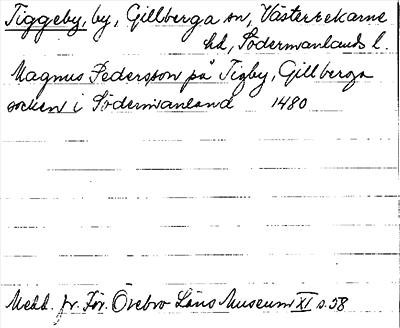 Tiggeby, by, Gillberga sn, Västerrekarne
hd, Södermanlands l.
Magnus Pedersson på Tigby, Gillberga
socken i Södermanland 1480
Medd. fr. För. Örebro Läns Museum XI s. 58